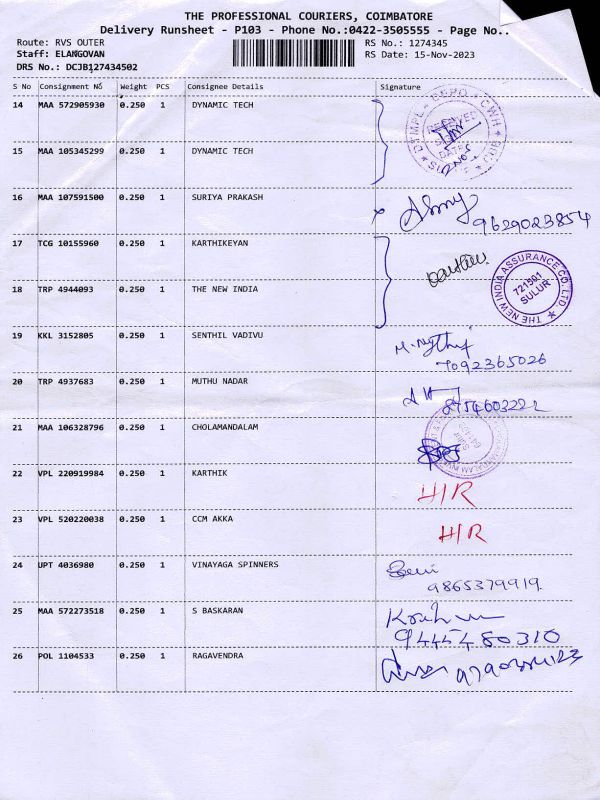 THE PROFESSIONAL COURIERS, COIMBATORE
Delivery Runsheet - P103 - Phone No.:0422-3505555 - Page No..
Route: RVS OUTER
Staff: ELANGOVAN
DRS No.: DCJB127434502
RS No.: 1274345
RS Date: 15-Nov-2023
S No Consignment No Weight PCS Consignee Details Signature
14 MAA 572905930 0.250 1 DYNAMIC TECH
RECEIVED
DATE
15 MAA 105345299 0.250 1 DYNAMIC TECH
16 MAA 107591500 0.250 1 SURIYA PRAKASH
9629023854
17 TCG 10155960 0.250 1 KARTHIKEYAN
18 TRP 4944093 0.250 1 THE NEW INDIA
THE NEW INDIA ASSURANCE CO. LTD.
721501
SULUR
19 KKL 3152805 0.250 1 SENTHIL VADIVU
7092365026
20 TRP 4937683 0.250 1 MUTHU NADAR
8754603222
21 MAA 106328796 0.250 1 CHOLAMANDALAM
22 VPL 220919984 0.250 1 KARTHIK H/R
23 VPL 520220038 0.250 1 CCM AKKA H/R
24 UPT 4036980 0.250 1 VINAYAGA SPINNERS
9865379919
25 MAA 572273518 0.250 1 S BASKARAN
9445480310
26 POL 1104533 0.250 1 RAGAVENDRA